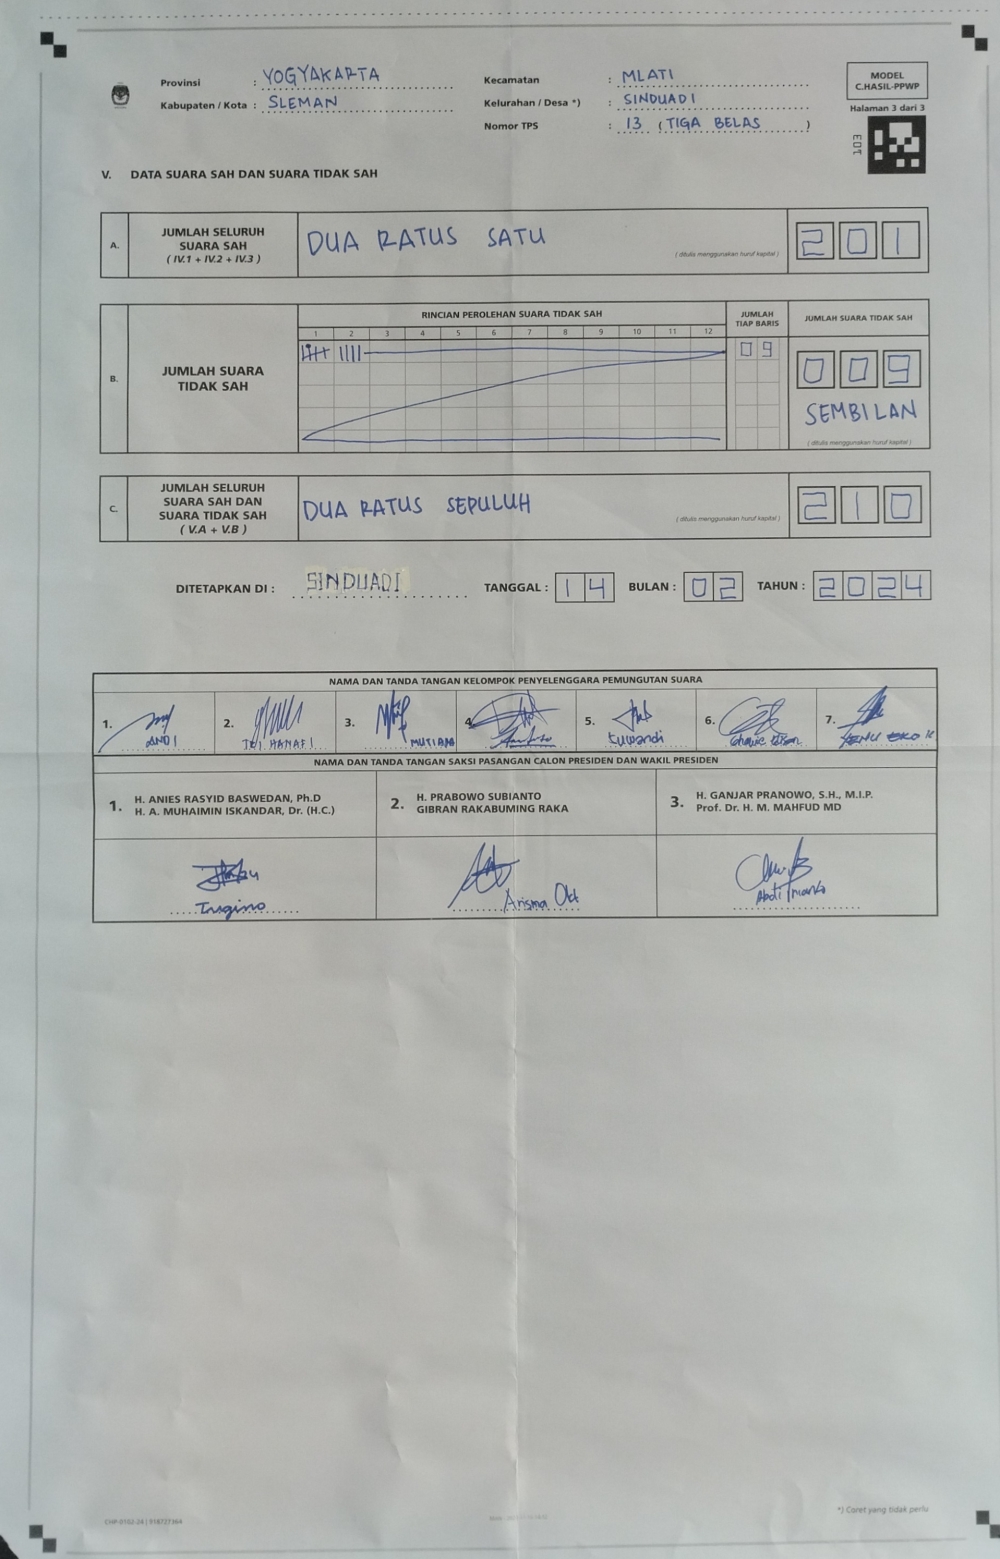 Provinsi : YOGYAKARTA
Kabupaten / Kota : SLEMAN
Kecamatan : MLATI
Kelurahan / Desa *) : SINDUADI
Nomor TPS : 13 ( TIGA BELAS )
MODEL
C.HASIL-PPWP
Halaman 3 dari 3
V. DATA SUARA SAH DAN SUARA TIDAK SAH
A. JUMLAH SELURUH
SUARA SAH
( IV.1 + IV.2 + IV.3 )
DUA RATUS SATU
( ditulis menggunakan huruf kapital )
2 0 1
B. JUMLAH SUARA
TIDAK SAH
RINCIAN PEROLEHAN SUARA TIDAK SAH
1 2 3 4 5 6 7 8 9 10 11 12
JUMLAH
TIAP BARIS
0 9
JUMLAH SUARA TIDAK SAH
0 0 9
SEMBILAN
( ditulis menggunakan huruf kapital )
C. JUMLAH SELURUH
SUARA SAH DAN
SUARA TIDAK SAH
( V.A + V.B )
DUA RATUS SEPULUH
( ditulis menggunakan huruf kapital )
2 1 0
DITETAPKAN DI : SINDUADI TANGGAL : 14 BULAN : 02 TAHUN : 2024
NAMA DAN TANDA TANGAN KELOMPOK PENYELENGGARA PEMUNGUTAN SUARA
1. 2. 3. 4. 5. 6. 7.
ANDI TRI HANAFI MUTIARA Kuwandi
NAMA DAN TANDA TANGAN SAKSI PASANGAN CALON PRESIDEN DAN WAKIL PRESIDEN
1. H. ANIES RASYID BASWEDAN, Ph.D
H. A. MUHAIMIN ISKANDAR, Dr. (H.C.)
2. H. PRABOWO SUBIANTO
GIBRAN RAKABUMING RAKA
3. H. GANJAR PRANOWO, S.H., M.I.P.
Prof. Dr. H. M. MAHFUD MD
Arisma
*) Coret yang tidak perlu
CHP-0102-24 | 918727364